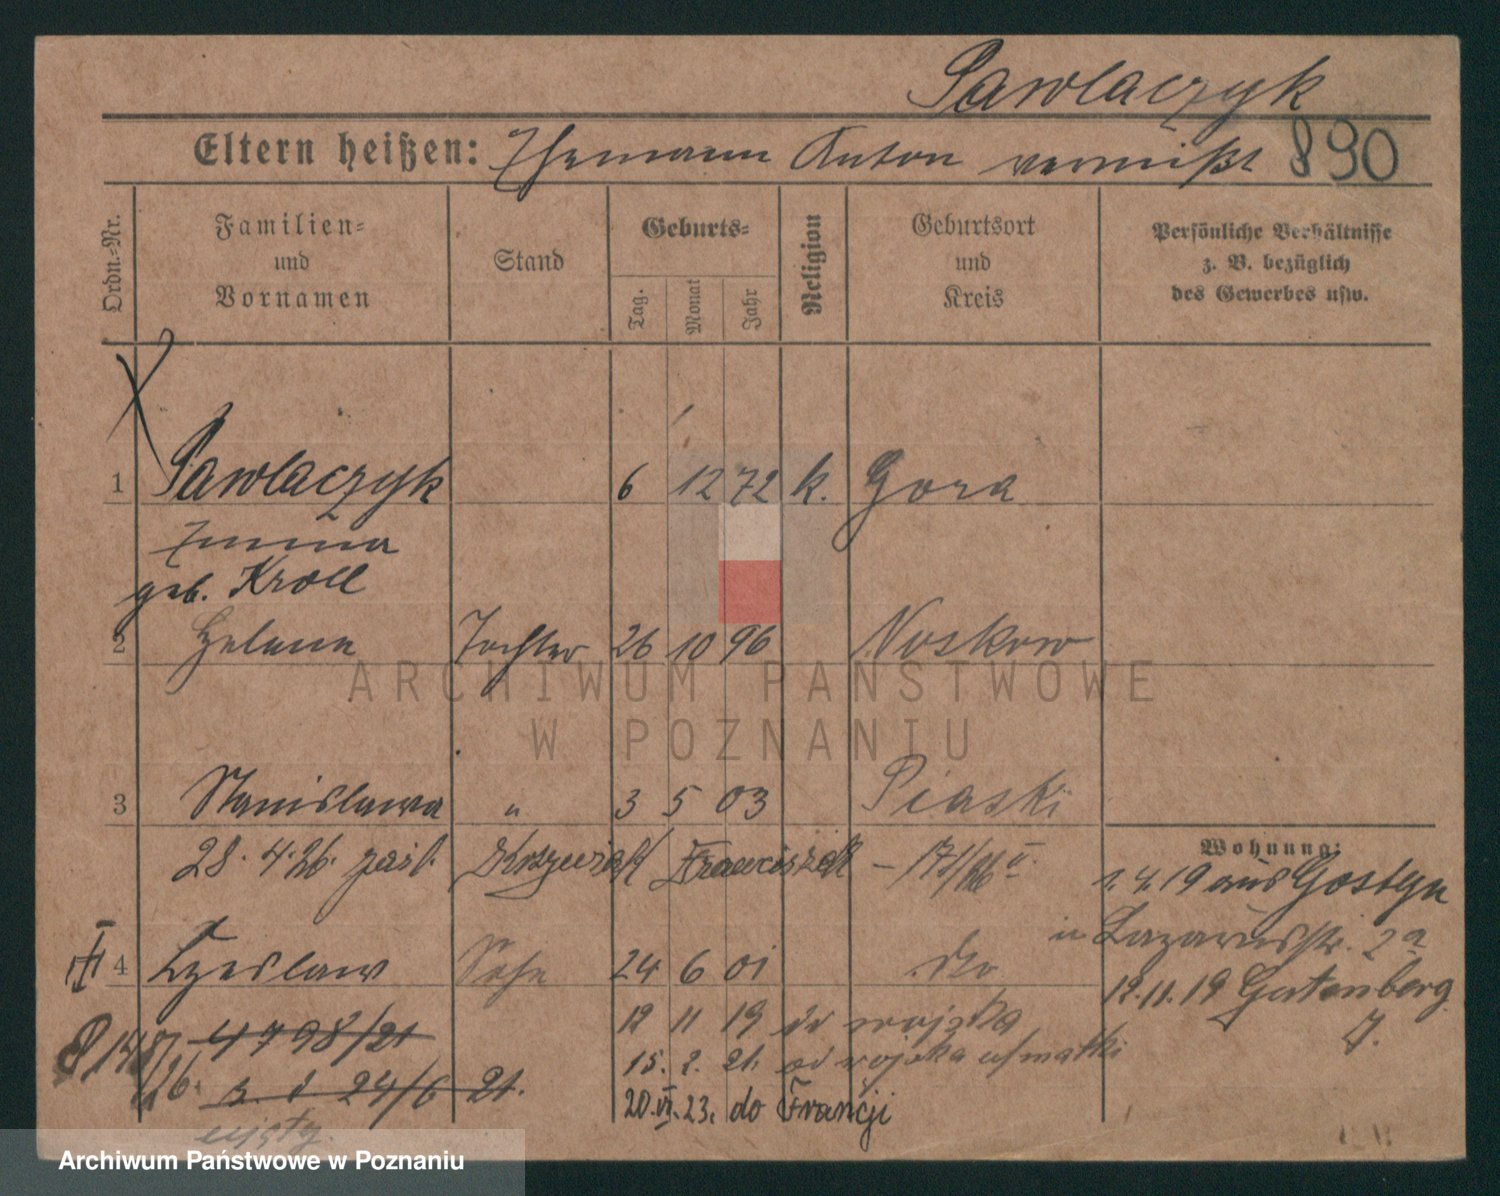 Pawlaczyk
Eltern heißen: Ehemann Anton vermißt 890
Ordn.-Nr.
Familien-
und
Vornamen
Stand
Geburts-
Tag.
Monat
Jahr
Religion
Geburtsort
und
Kreis
Persönliche Verhältnisse
z. B. bezüglich
des Gewerbes usw.
1 Pawlaczyk 6 12 72 k. Gora
geb. Kroll
2 Helene Tochter 26 10 96 Noskow
ARCHIWUM PAŃSTWOWE
W POZNANIU
3 Stanislawa " 3 5 03 Piaski
28. 4. 26. Franciszek
Wohnung:
1. 4. 19 aus Gostyn
in Lazarusstr. 2a
4 Czeslaw Sohn 24 6 01 dto
12.11.19 Gutenberg
4798/21
12 11 19 do wojska
15. 2. 21. od wojska u/matki
24/6 21.
20.VI.23. do Francji
Archiwum Państwowe w Poznaniu